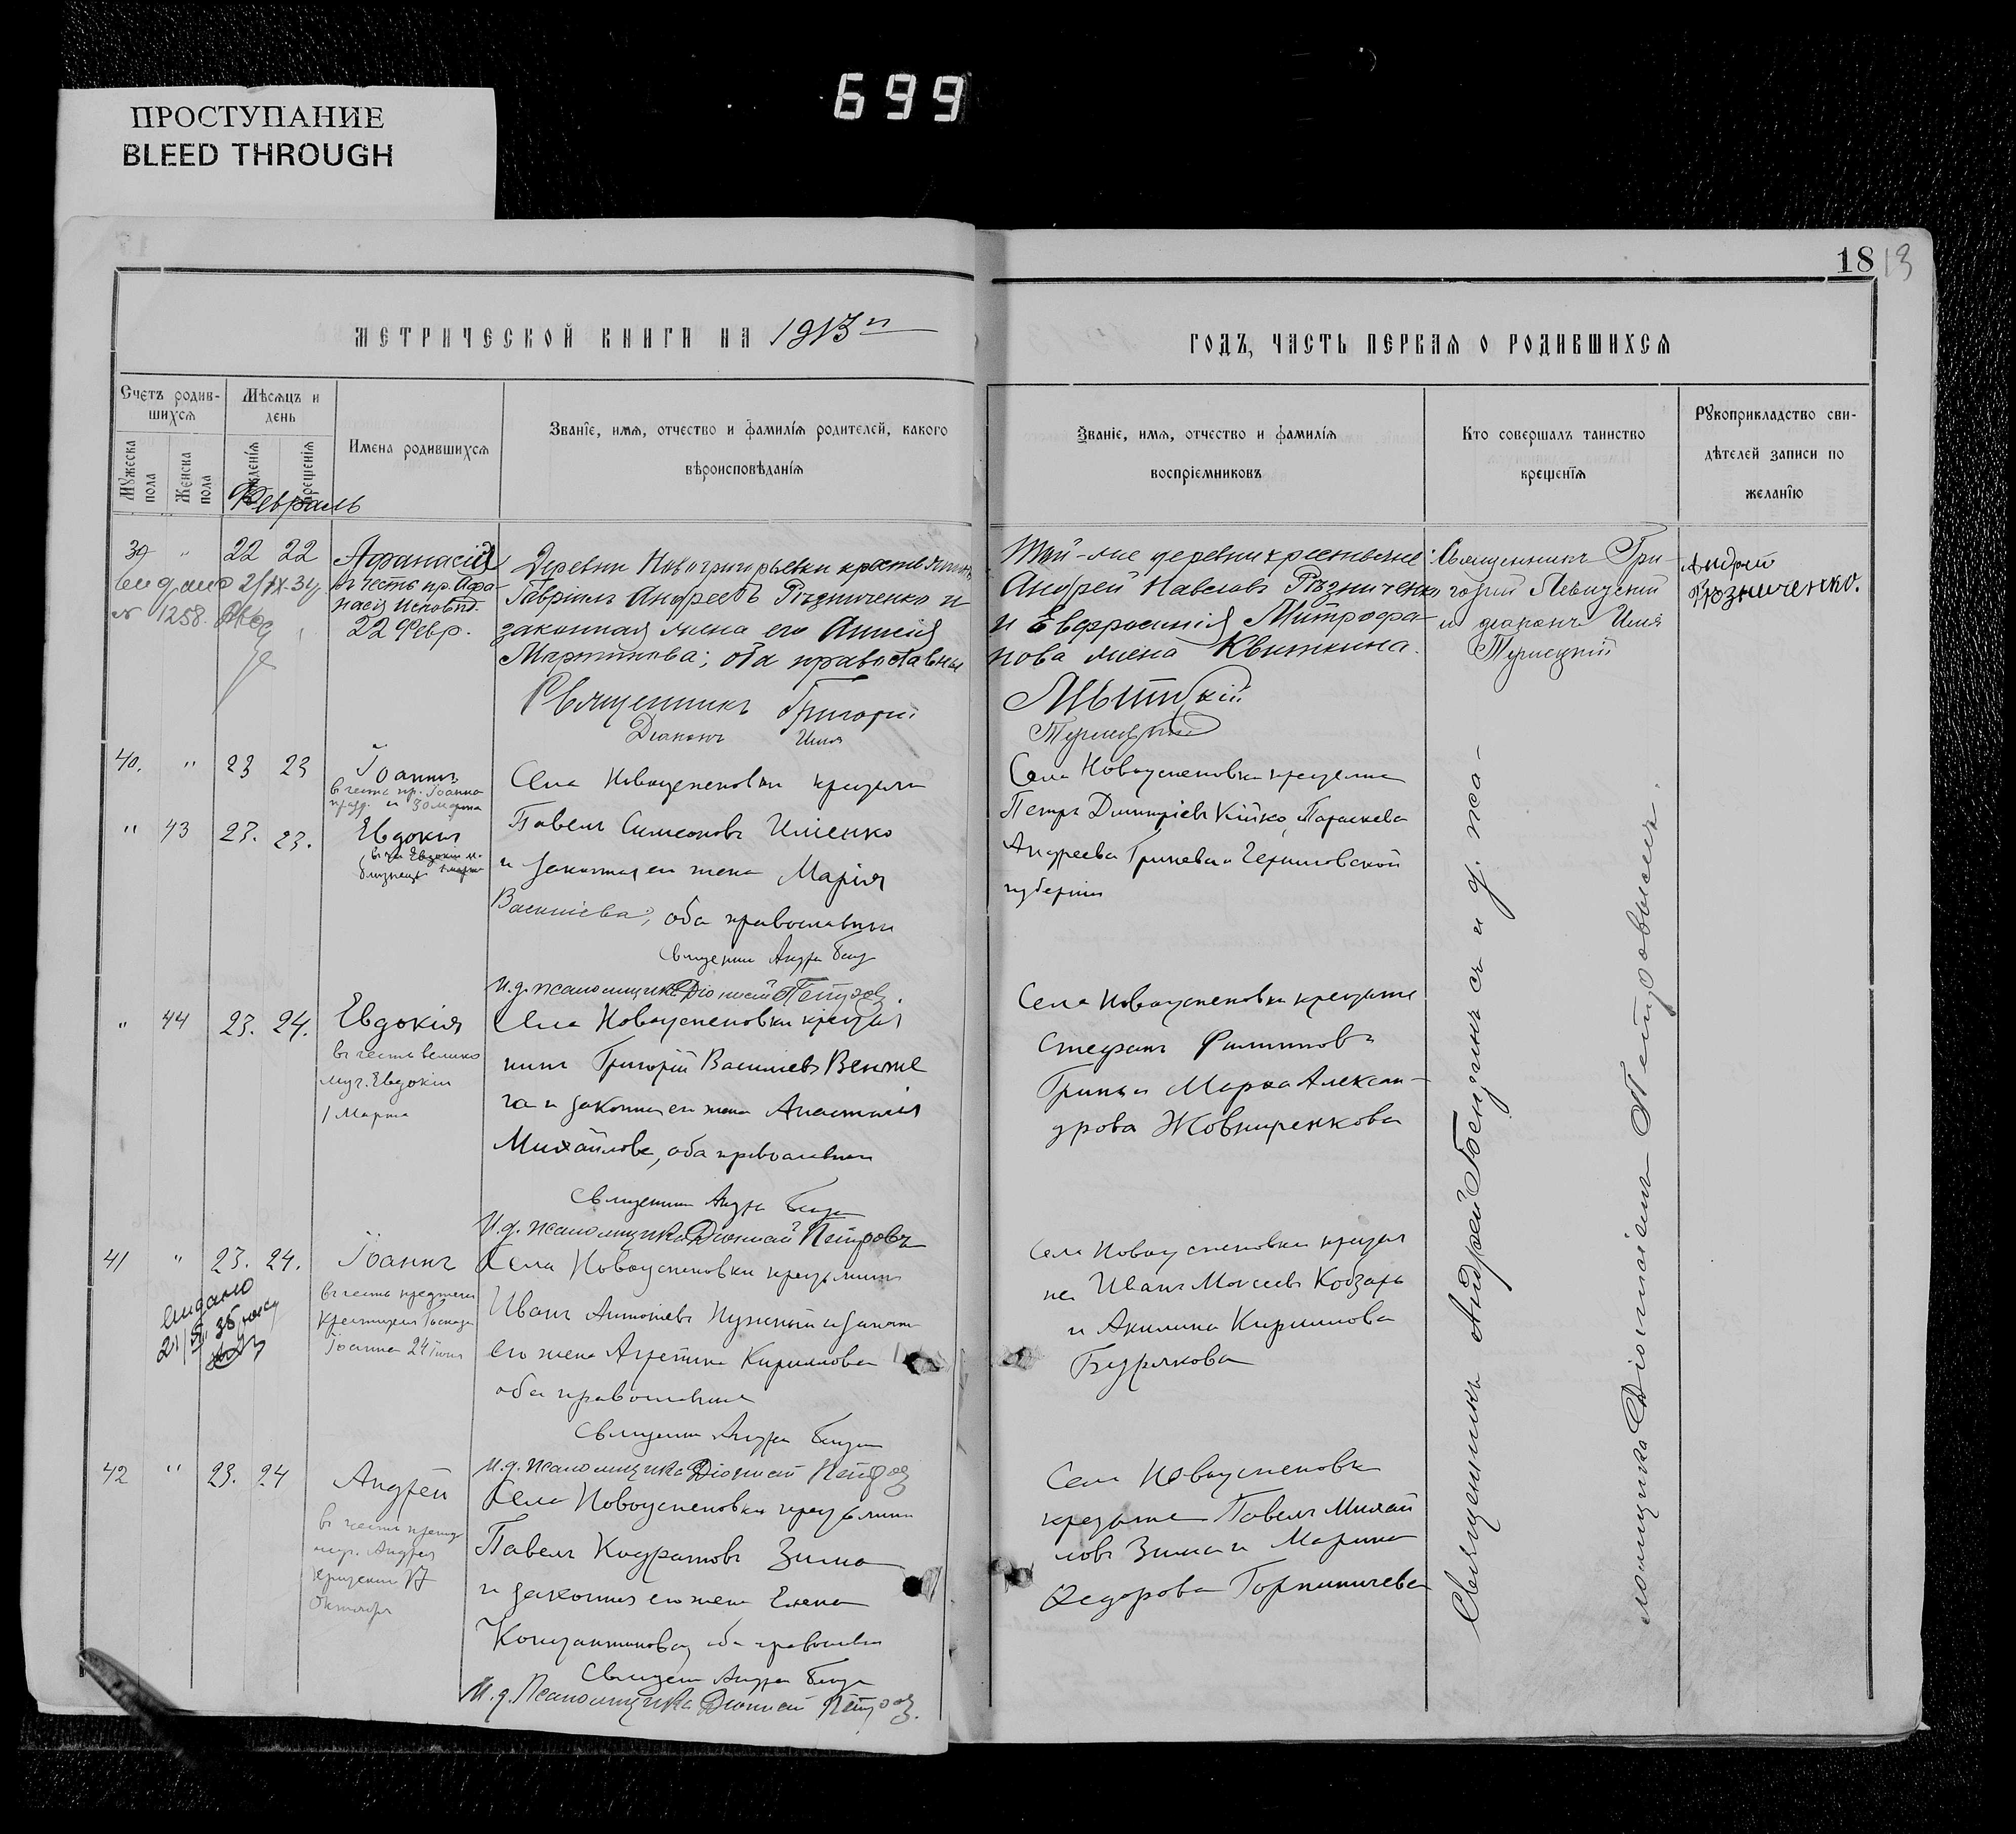 699
ПРОСТУПАНИЕ
BLEED THROUGH
18 19
МЕТРИЧЕСКОЙ КНИГИ НА 1913й
ГОДЪ, ЧАСТЬ ПЕРВАЯ О РОДИВШИХСЯ
Счетъ родив-
шихся
Мужеска
пола
Женска
пола
Мѣсяцъ и
день
рожденія
крещенія
Имена родившихся
Званіе, имя, отчество и фамилія родителей, какого
вѣроисповѣданія
Званіе, имя, отчество и фамилія
воспріемниковъ
Кто совершалъ таинство
крещенія
Рукоприкладство сви-
дѣтелей записи по
желанію
Февраль
39 " 22 22
Афанасій
въ честь пр. Афа-
насія Исповѣд.
22 Февр.
Выдано 2/IX-34
№ 1258.
Деревни Новогригорьевки крестьянинъ
Гавриилъ Андреевъ Рѣзниченко и
законная жена его Анисія
Мартинова; оба православные
Священникъ Григорій
Діаконъ Илія
Той-же деревни крестьяне:
Андрей Павловъ Рѣзниченко
и Евфросинія Митрофа-
нова жена Квиткина.
Левитскій
Священникъ Гри-
горій Левицкій
и діаконъ Илія
Андрей
Рѣзниченко.
40. " 23 23
Іоаннъ
въ честь пр. Іоанна
30 марта
" 43 23. 23.
Евдокія
Села Новоуспеновки
Павелъ Симеоновъ
и законная его жена Марія
Василіева; оба православные
Священникъ Андрей
И.д. псаломщика Діонисій Петровъ.
Села Новоуспеновки крестьяне
Петръ Димитріевъ Кійко, Параскева
Андреева Гринева Черниговской
губерніи
" 44 23. 24.
Евдокія
въ честь велико
муч. Евдокіи
1 Марта
Села Новоуспеновки крестья
нинъ Григорій Василіевъ Венже
га и законная его жена Анастасія
Михайлова, оба православные
Священникъ Андрей
И.д. псаломщика Діонисій Петровъ
Села Новоуспеновки крестьяне
Стефанъ Филипповъ
Гринь и Марѳа Алексан-
дрова Жовниренкова
41 " 23. 24.
Іоаннъ
въ честь предтечи
Крестителя Господня
Іоанна 24 Іюня
Выдано
Села Новоуспеновки крестьянинъ
Иванъ Антоніевъ Нужный и законная
его жена Агрепина Кириллова
оба православные
Священникъ Андрей
И.д. псаломщика Діонисій Петровъ
Села Новоуспеновки крестья
не Иванъ Моисеевъ Кобзарь
и Акилина Кириллова
Бурякова
42 " 23. 24
Андрей
въ честь
муч. Андрея
17
Октября
Села Новоуспеновки крестьянинъ
Павелъ Кодратовъ Зима
и законная его жена Елена
Константинова, оба православные
Священникъ Андрей
И.д. Псаломщика Діонисій Петровъ.
Села Новоуспеновки
крестьяне Павелъ Михай
ловъ Зима и Марина
Ѳедорова Горпиничева
Священникъ Андрей съ и д. пса-
ломщика Діонисіемъ Петровымъ.